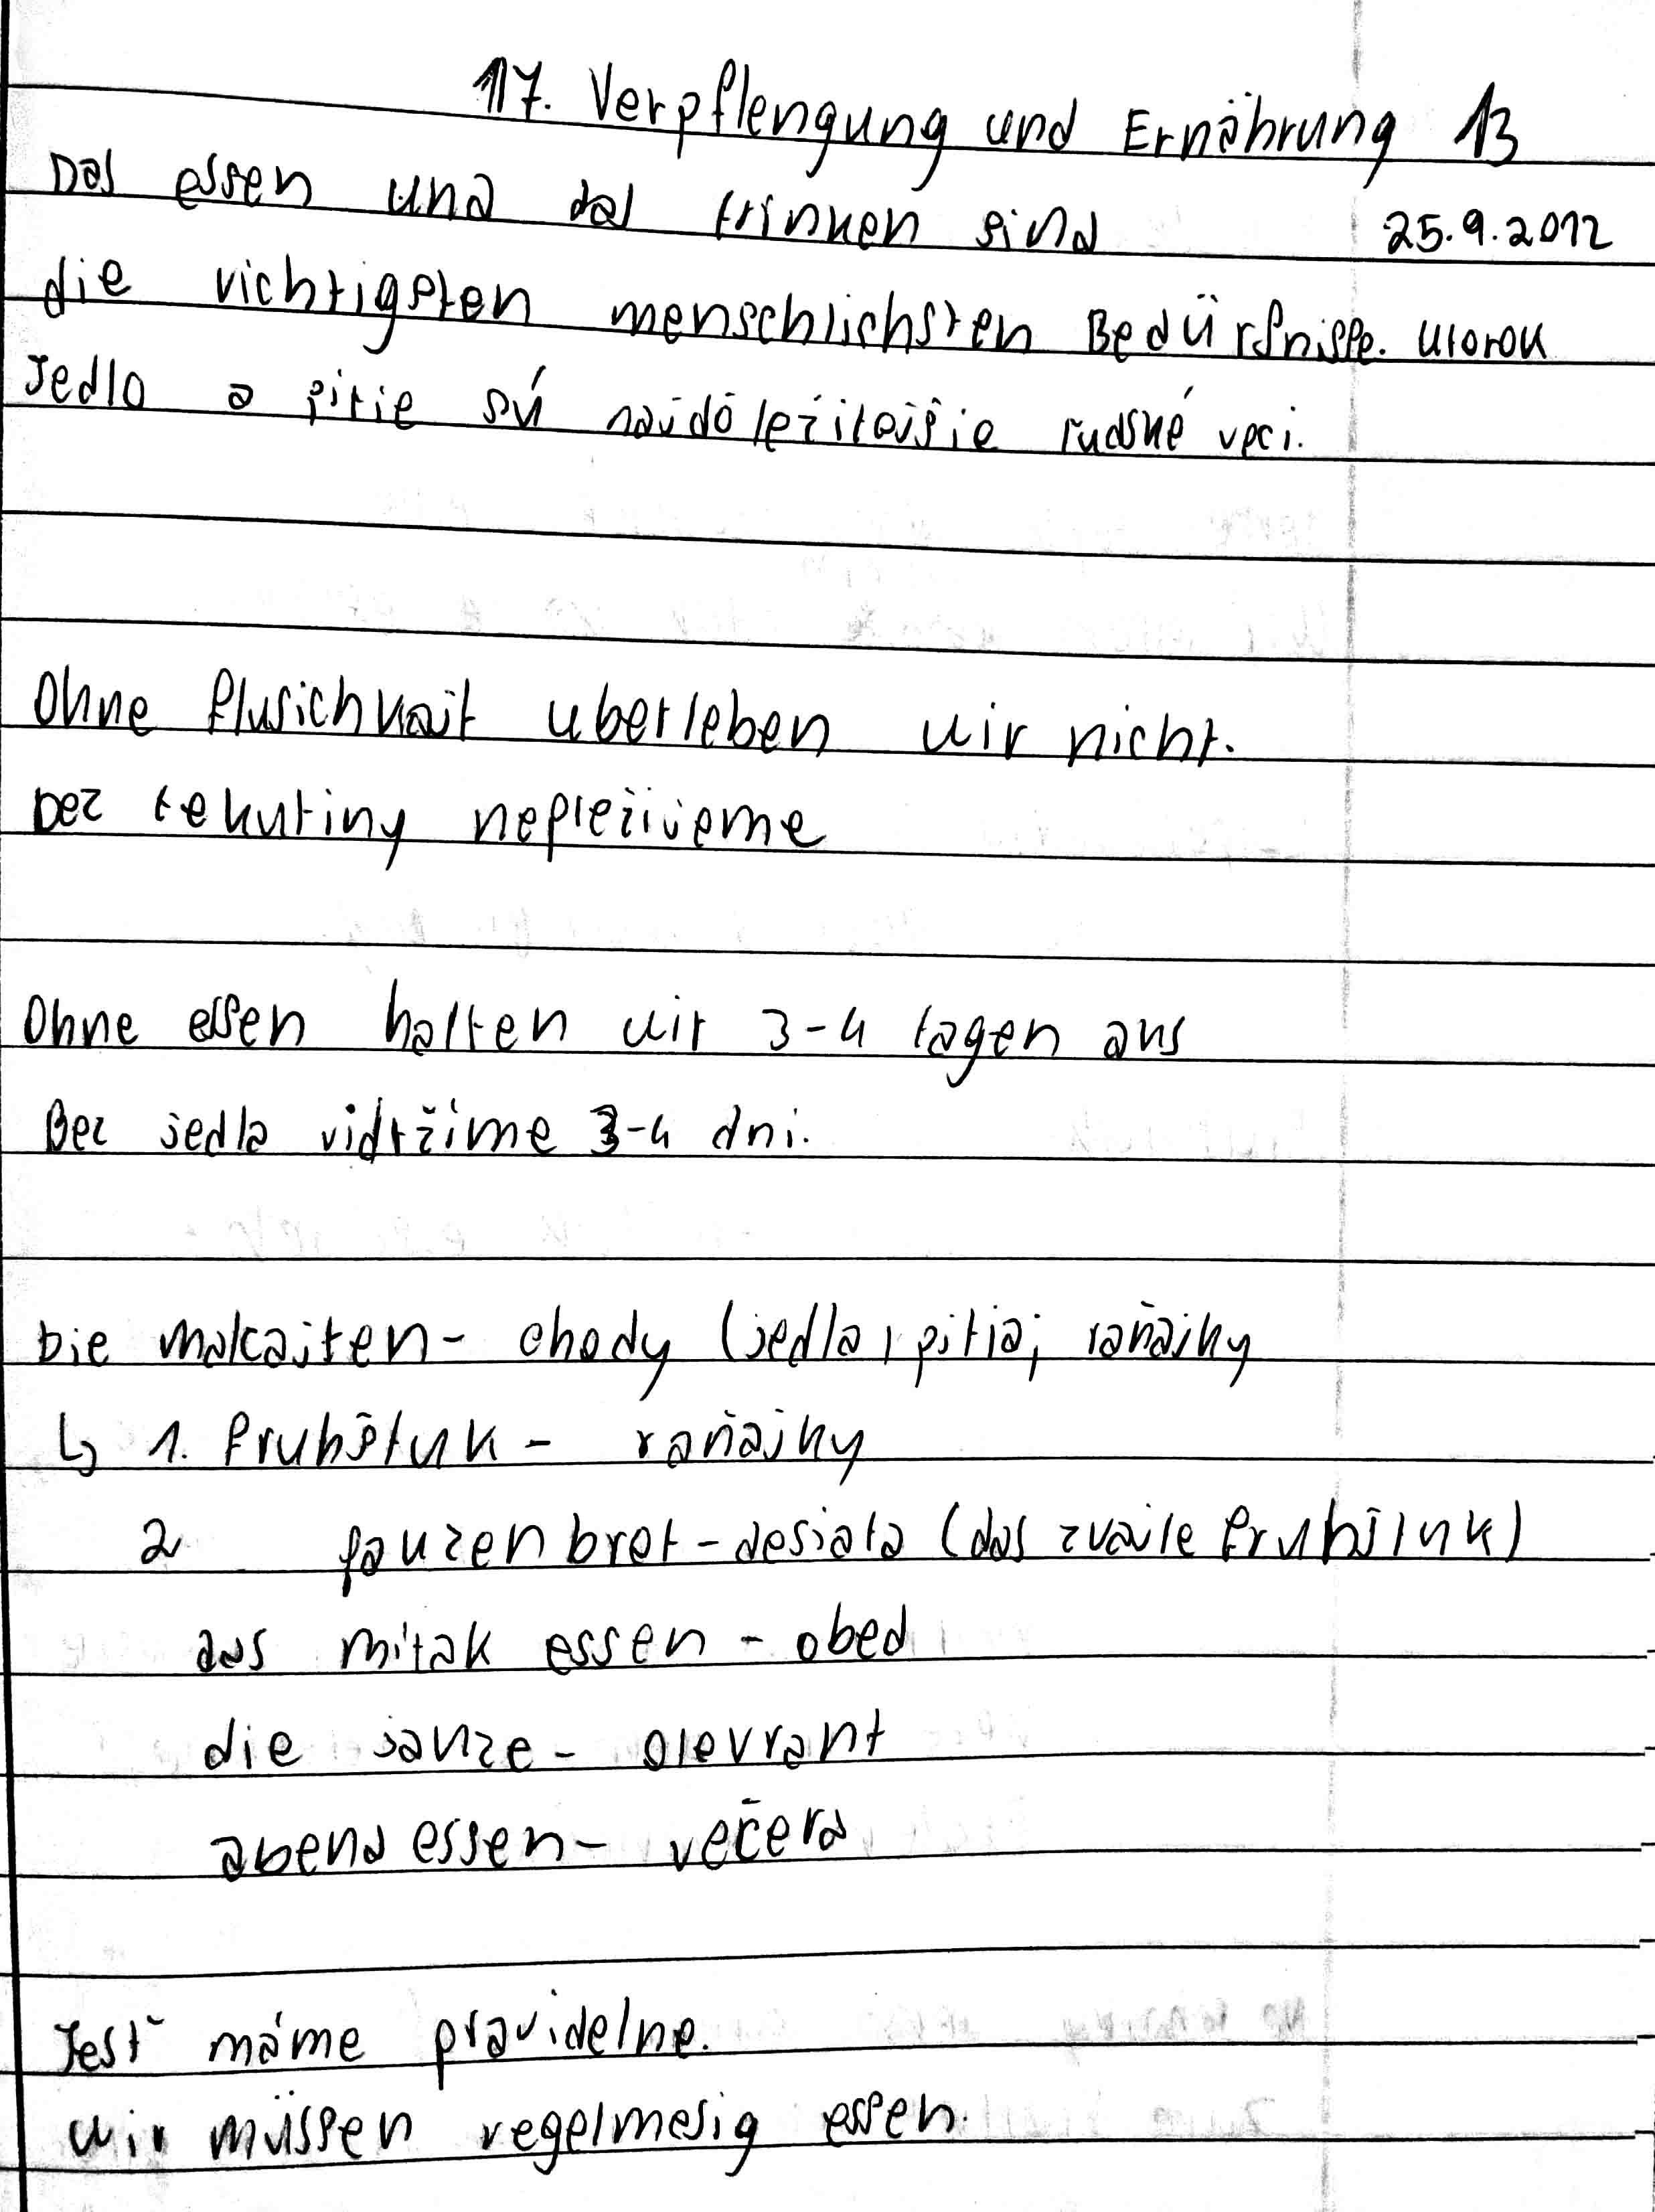 17. Verpflengung und Ernährung 13
Das essen und das trinken sind 25.9.2012
die vichtigsten menschlichsten Bedürfnisse. utorok
Jedlo a pitie sú najdôležitejšie ľudské veci.
Ohne flusichkait uberleben wir nicht.
Bez tekutiny neprežijeme
Ohne essen halten wir 3-4 tagen aus
Bez jedla vidržíme 3-4 dni.
Die malcajten - chody (jedla, pitia; raňajky
↳ 1. fruhštuk - raňajky
2 pauzenbrot - desiata (das zvaite fruhštuk)
das mitak essen - obed
die jauze - olevrant
abend essen - večera
Jesť máme pravidelne.
wir müssen regelmesig essen.